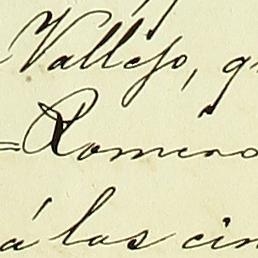 Vallejo, q
=Romero
á las cin